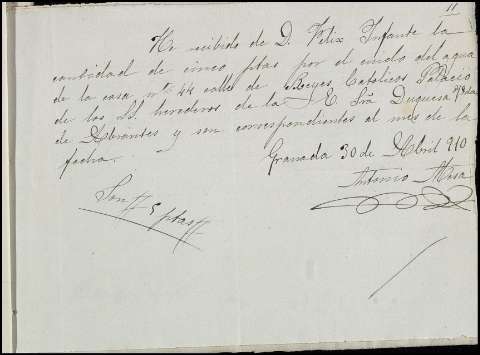 11
He recibido de D. Felix Infante la
cantidad de cinco ptas por el cuido del agua
de la casa nº 44 calle de Reyes Catolicos Palacio
de los SS. herederos de la E Srª Duquesa
de Abrantes y son correspondientes al mes de la
fecha.
Granada 30 de Abril 910
Antonio Mesa
Son # 5 ptas #